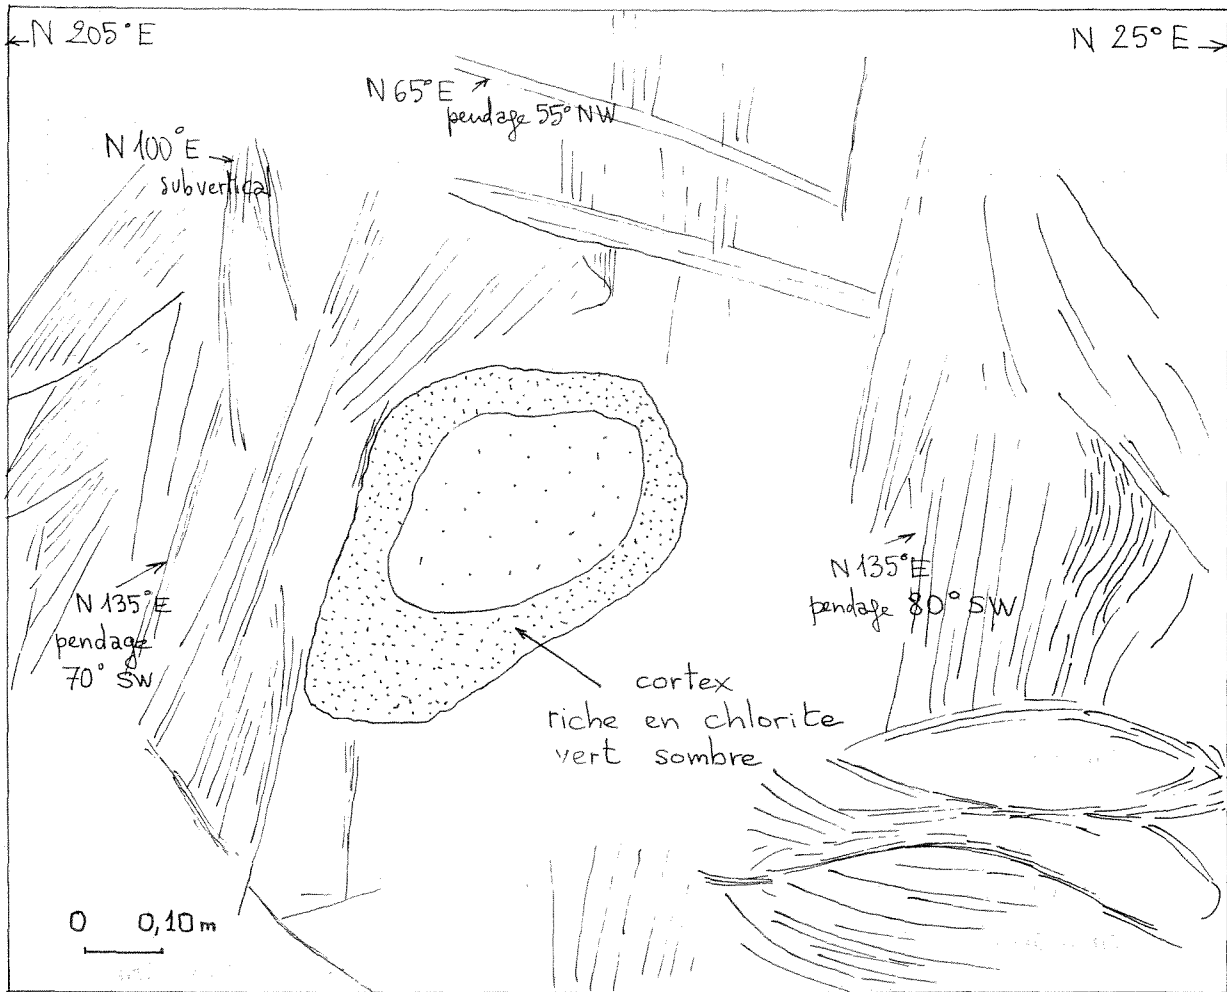 N 205°E
N 25°E
N 65°E
pendage 55° NW
N 100°E
subvertical
N 135°E
pendage
70° SW
N 135°E
pendage 80° SW
cortex
riche en chlorite
vert sombre
0 0,10 m